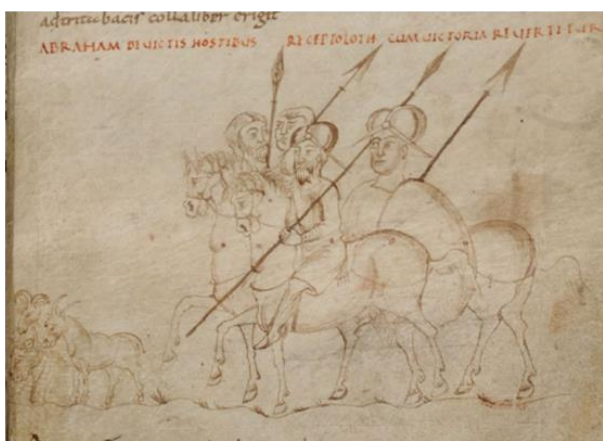 ad ritus bacis collaliber erigit
ABRAHAM DEVICTIS HOSTIBUS RECEPTO LOTH CUM VICTORIA REVERTITUR